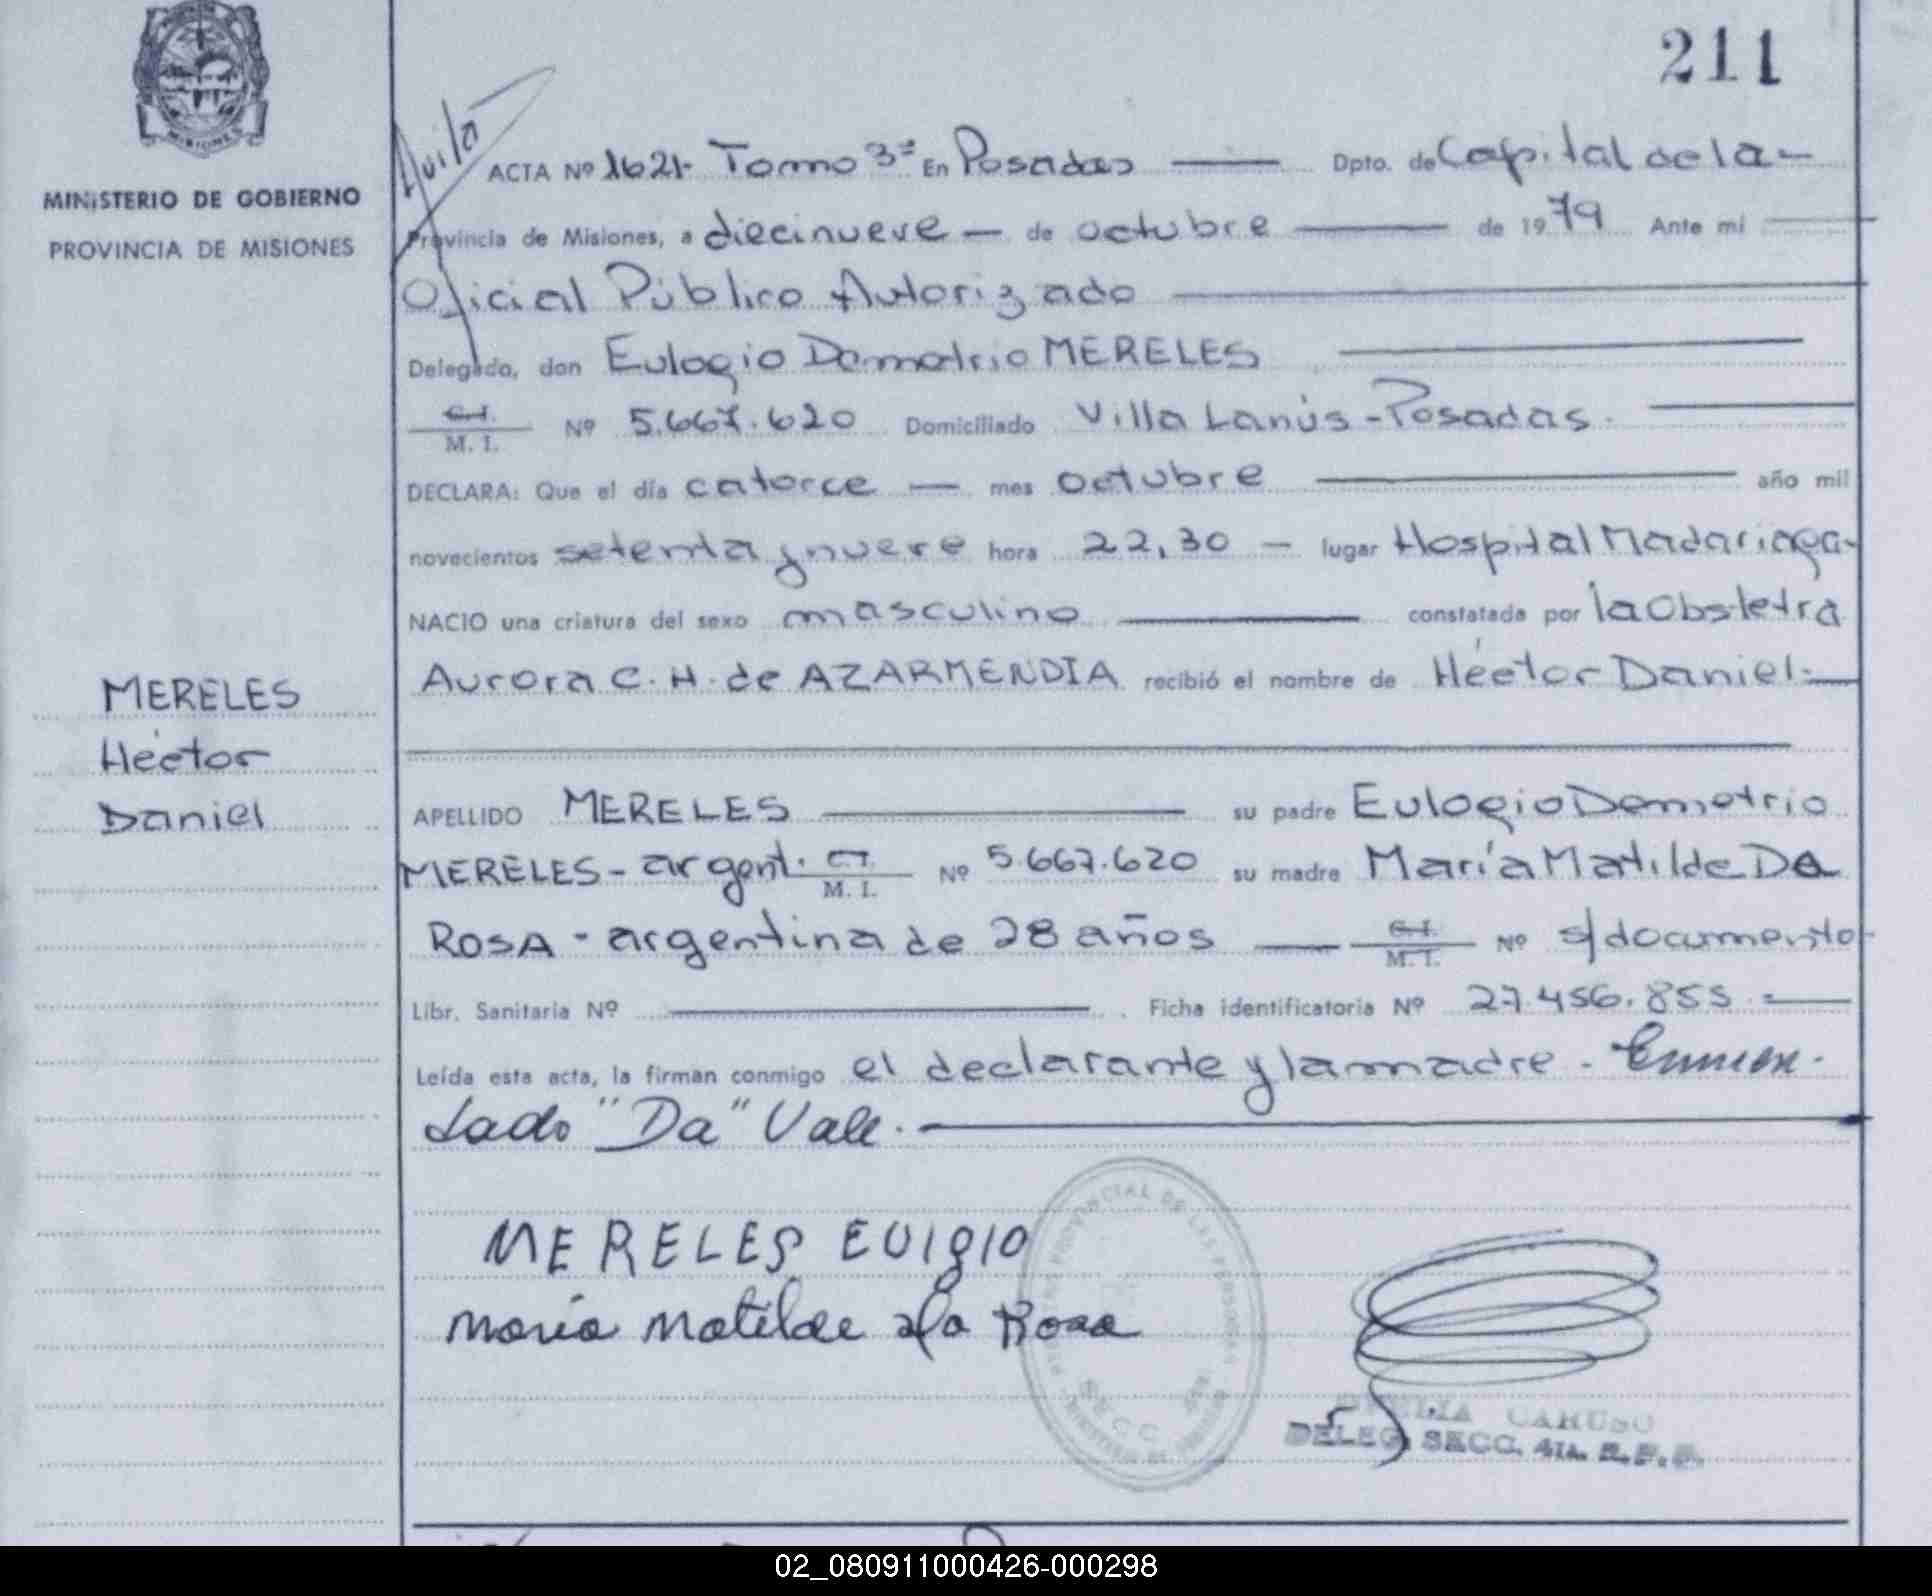 211
MISIONES
MINISTERIO DE GOBIERNO
PROVINCIA DE MISIONES
MERELES
Héctor
Daniel
Avila
ACTA Nº 1621- Tomo 3º En Posadas — Dpto. de Capital de la -
Provincia de Misiones, a diecinueve — de octubre — de 1979 Ante mi
Oficial Público Autorizado
Delegado, don Eulogio Demetrio MERELES
C.I. M. I. Nº 5.667.620 Domiciliado Villa Lanús - Posadas.
DECLARA: Que el día catorce — mes octubre — año mil
novecientos setenta y nueve hora 22,30 — lugar Hospital Madariaga-
NACIO una criatura del sexo masculino — constatada por la Obstetra
Aurora C. H. de AZARMENDIA recibió el nombre de Héctor Daniel.-
APELLIDO MERELES — su padre Eulogio Demetrio
MERELES - argent. C.I. M. I. Nº 5.667.620 su madre María Matilde Da
ROSA - argentina de 28 años — C.I. M. I. Nº s/documento-
Libr. Sanitaria Nº — Ficha identificatoria Nº 27.456.855.-
Leída esta acta, la firman conmigo el declarante y la madre. - Enmen-
dado "Da" Vale.
MERELES EUlgIO
María Matilde da Rosa
PROVINCIAL DE LAS PERSONAS
SECC
CARUSO
DELEG. SECC. 4ta. R.P.P.
02_080911000426-000298